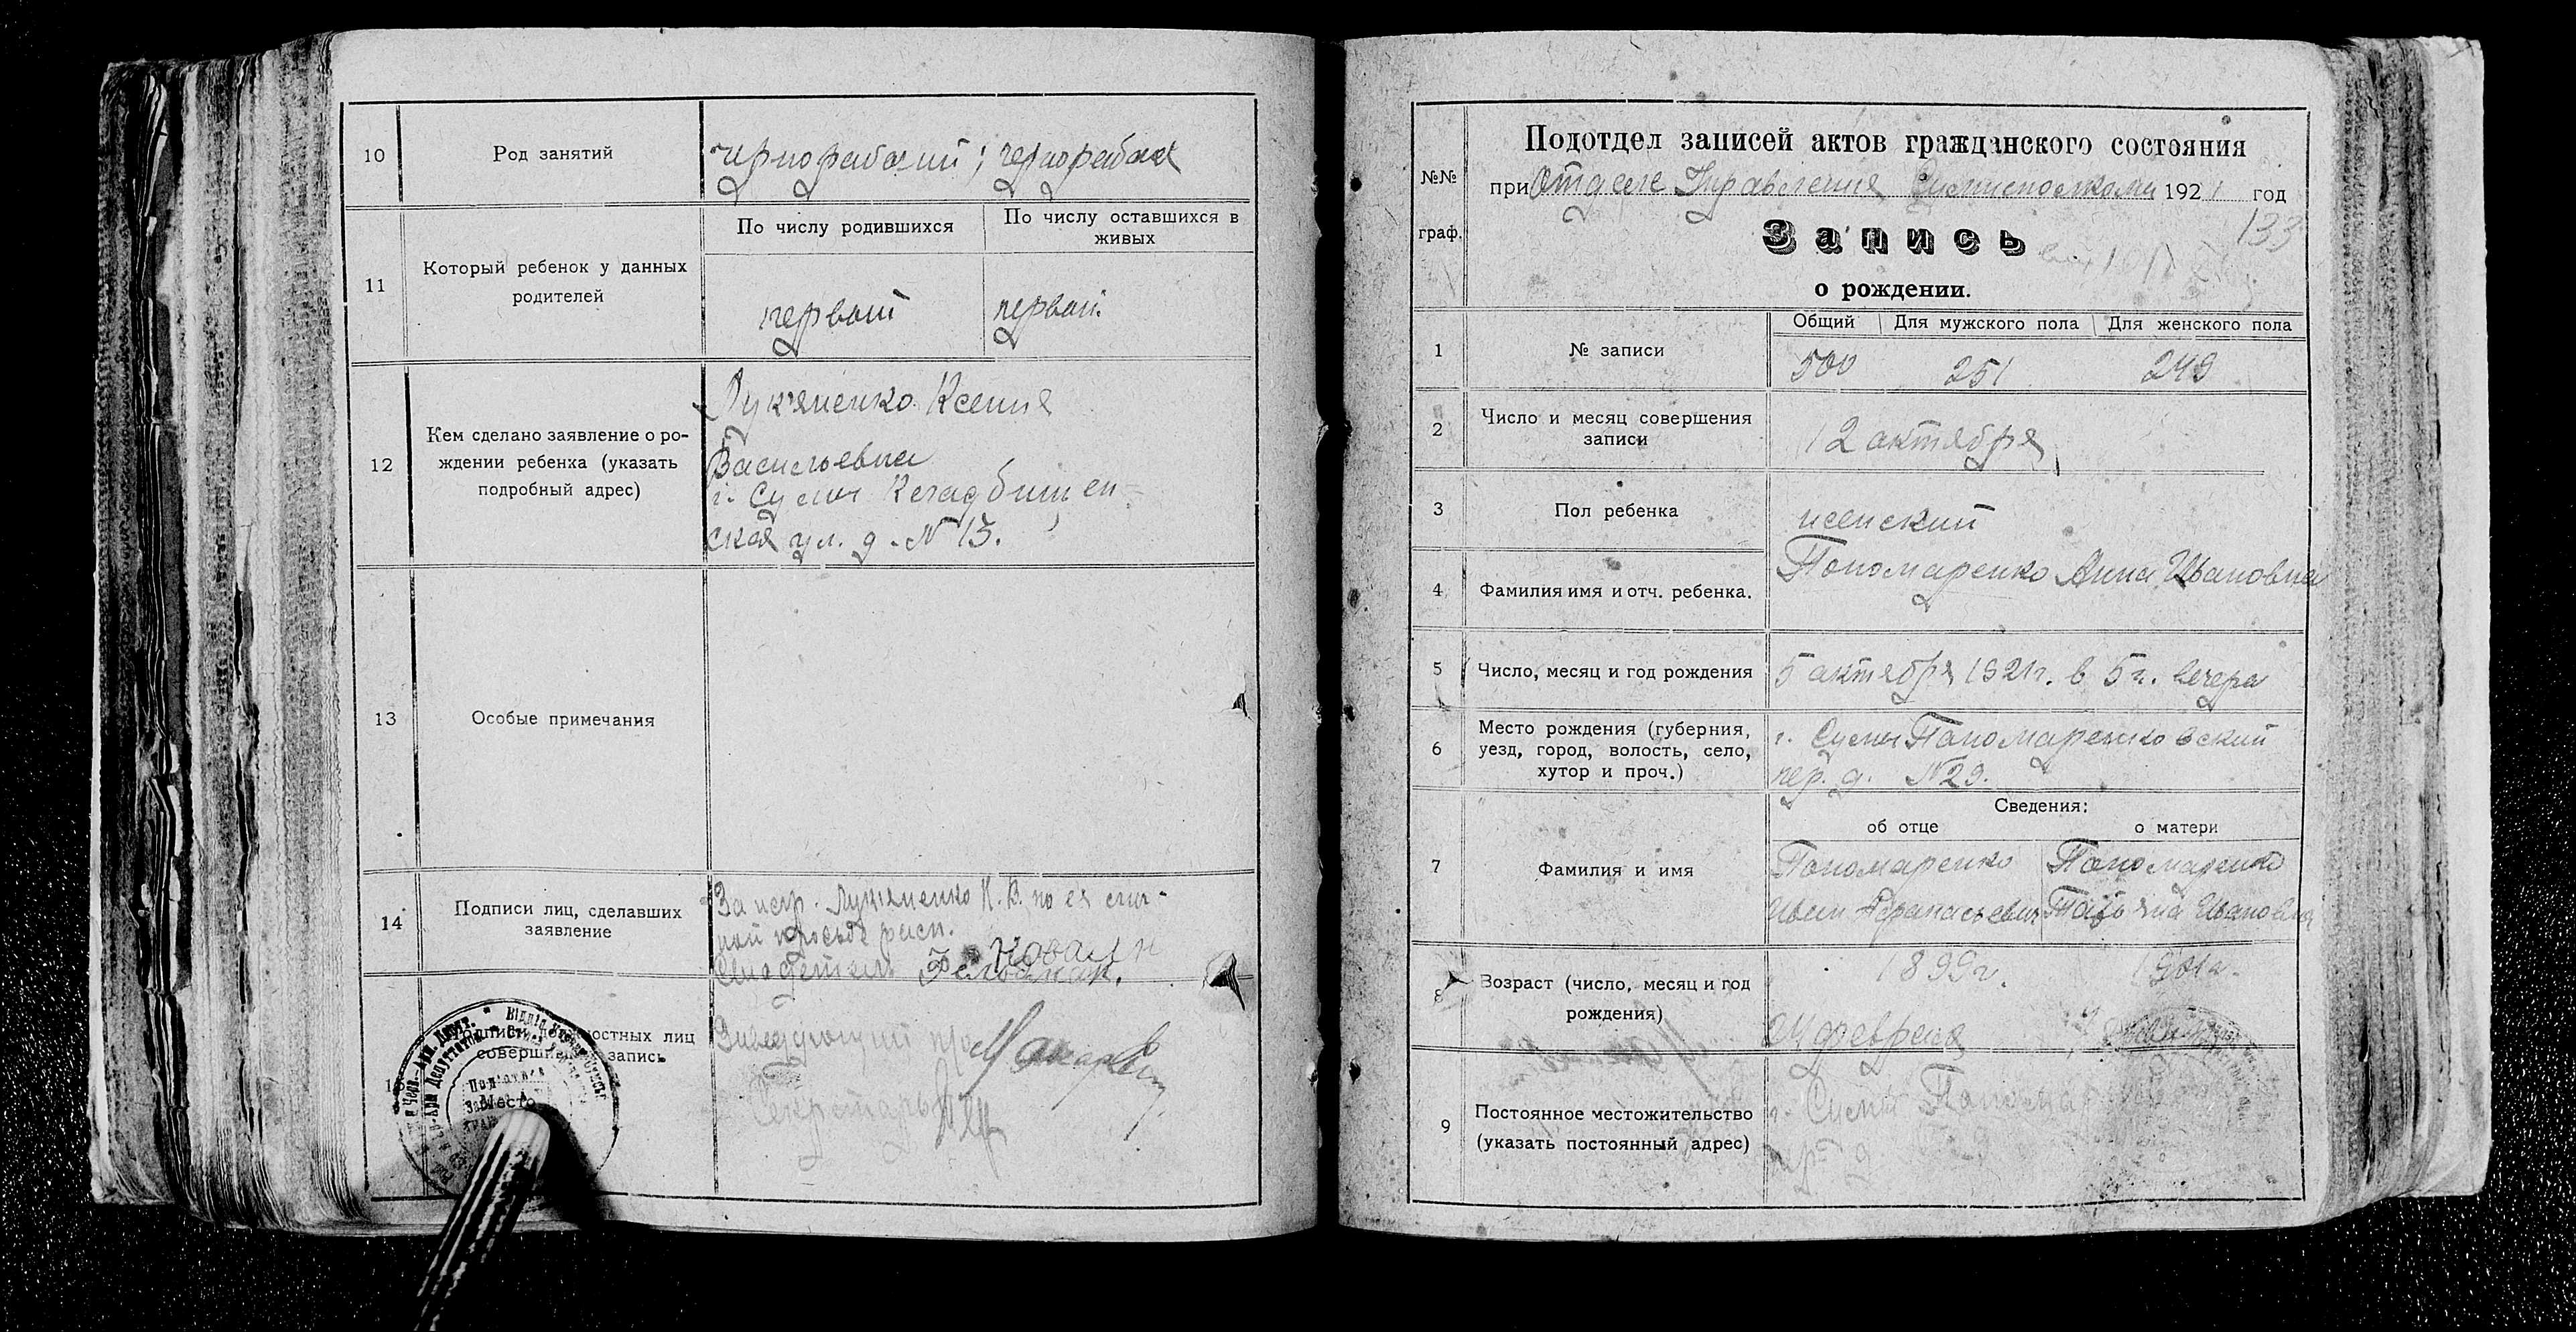 10
Род занятий
чернорабочий; чернорабочая
11
Который ребенок у данных
родителей
По числу родившихся
По числу оставшихся в
живых
первый
первый.
12
Кем сделано заявление о ро-
ждении ребенка (указать
подробный адрес)
Лук'яненко Ксения
Васильевна
г. Сумы Кладбищен-
ская ул. д. № 13.
13
Особые примечания
14
Подписи лиц, сделавших
заявление
За негр. Лукяненко К. В. по ея лич-
ной просьбе расп.
Свидетель
остных лиц
запись
Заведующий
Секретарь
№№
граф.
Подотдел записей актов гражданского состояния
при Отделе Управления 1921 год
133
Запись
о рождении.
1
№ записи
Общий
Для мужского пола
Для женского пола
500
251
249
2
Число и месяц совершения
записи
12 октября
3
Пол ребенка
женский
4
Фамилия имя и отч. ребенка.
Пономаренко Анна Ивановна
5
Число, месяц и год рождения
5 октября 1921г. в 5 ч. вечера
6
Место рождения (губерния,
уезд, город, волость, село,
хутор и проч.)
г. Сумы Пономаренковский
пер. д. №29.
Сведения:
об отце
о матери
7
Фамилия и имя
Пономаренко
Иван Афанасьевич
Пономаренко
Татьяна Ивановна
8
Возраст (число, месяц и год
рождения)
1899г.
24 февраля
1901г.
9
Постоянное местожительство
(указать постоянный адрес)
г. Сумы